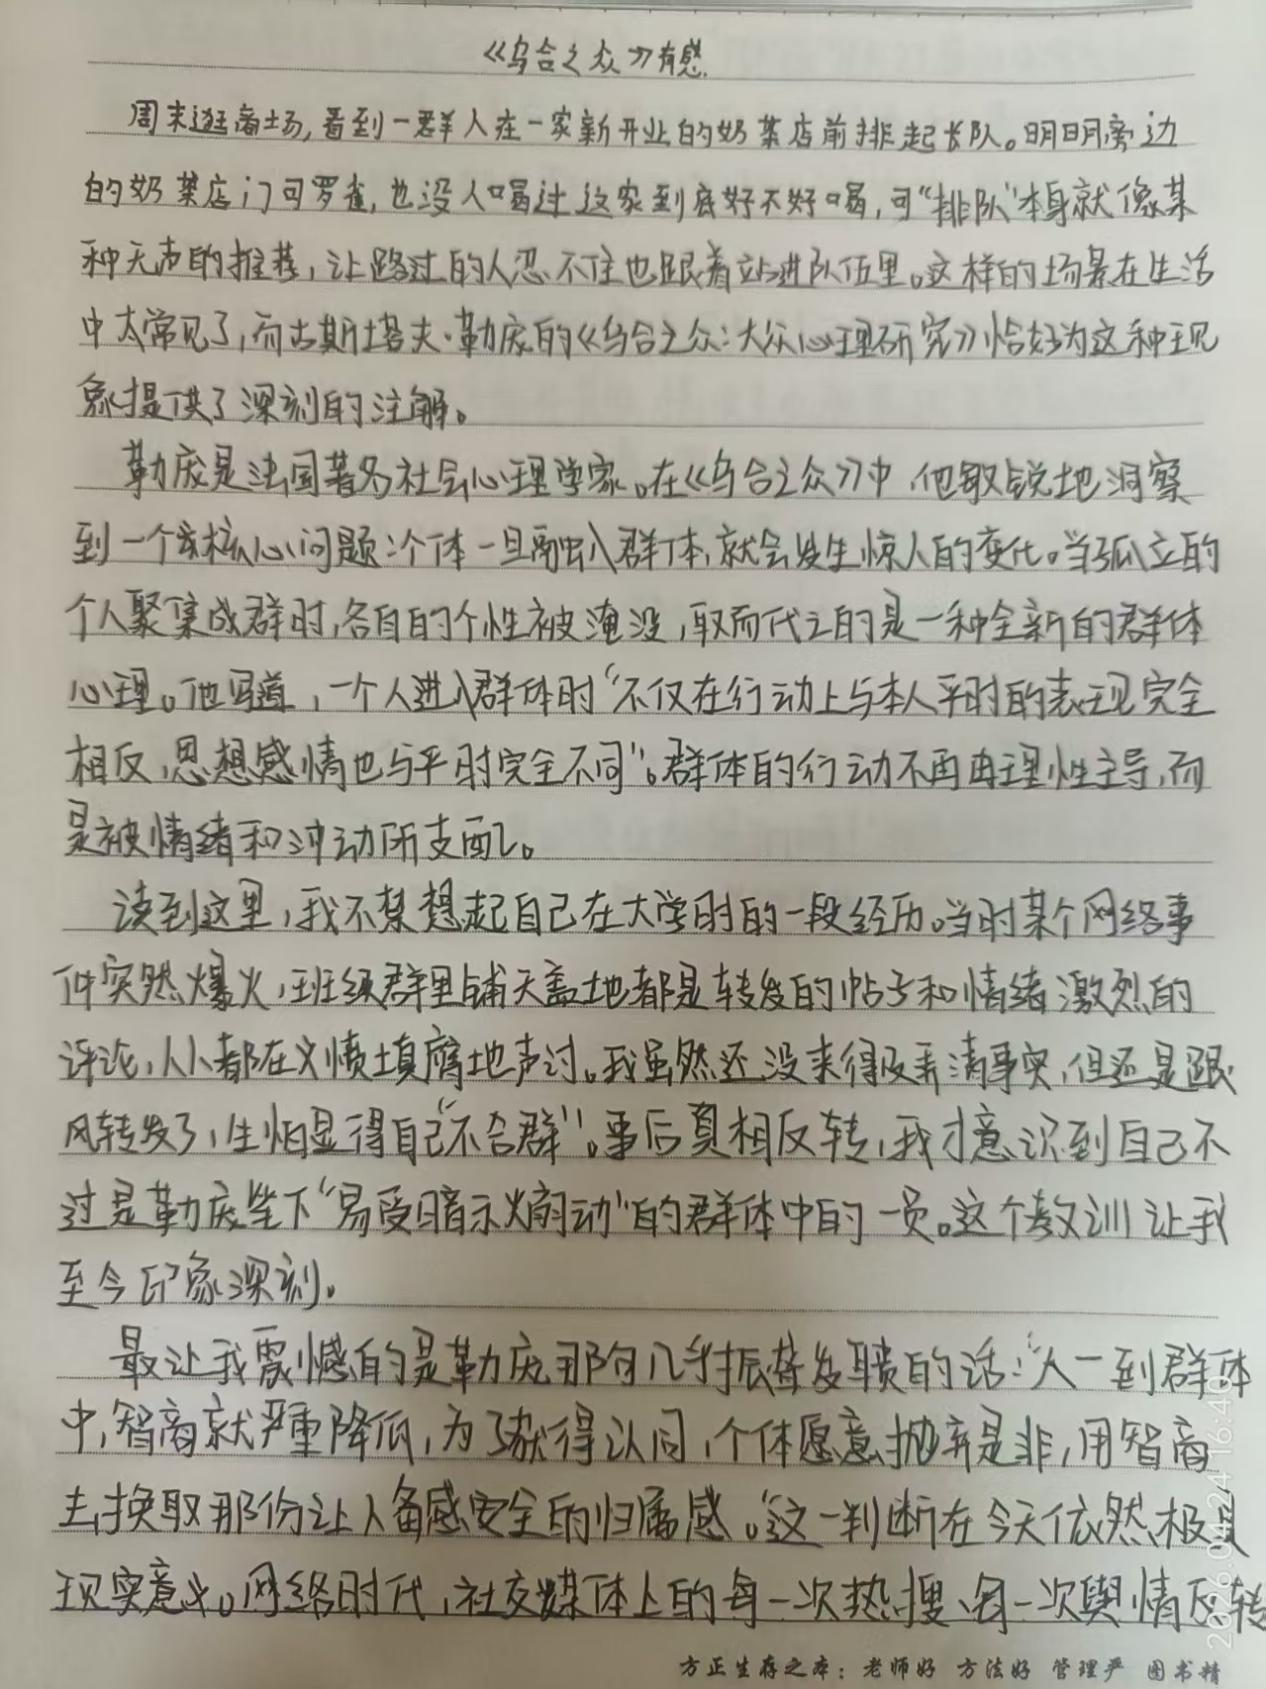 《乌合之众》有感.
周末逛商场,看到一群人在一家新开业的奶茶店前排起长队。明明旁边
的奶茶店门可罗雀,也没人喝过这家到底好不好喝,可“排队”本身就像某
种无声的推荐,让路过的人忍不住也跟着站进队伍里。这样的场景在生活
中太常见了,而古斯塔夫·勒庞的《乌合之众:大众心理研究》恰好为这种现
象提供了深刻的注解。
勒庞是法国著名社会心理学家。在《乌合之众》中,他敏锐地洞察
到一个核心问题:个体一旦融入群体,就会发生惊人的变化。当孤立的
个人聚集成群时,各自的个性被淹没,取而代之的是一种全新的群体
心理。他写道,一个人进入群体时“不仅在行动上与本人平时的表现完全
相反,思想感情也与平时完全不同”。群体的行动不再由理性主导,而
是被情绪和冲动所支配。
读到这里,我不禁想起自己在大学时的一段经历。当时某个网络事
件突然爆火,班级群里铺天盖地都是转发的帖子和情绪激烈的
评论,人人都在义愤填膺地声讨。我虽然还没来得及弄清事实,但还是跟
风转发了,生怕显得自己“不合群”。事后真相反转,我才意识到自己不
过是勒庞笔下“易受暗示煽动”的群体中的一员。这个教训让我
至今印象深刻。
最让我震憾的是勒庞那句几乎振聋发聩的话:“人一到群体
中,智商就严重降低,为了获得认同,个体愿意抛弃是非,用智商
去换取那份让人备感安全的归属感。”这一判断在今天依然极具
现实意义。网络时代,社交媒体上的每一次热搜、每一次舆情反转
方正生存之本：老师好 方法好 管理严 图书精
2026.04.24 16:40